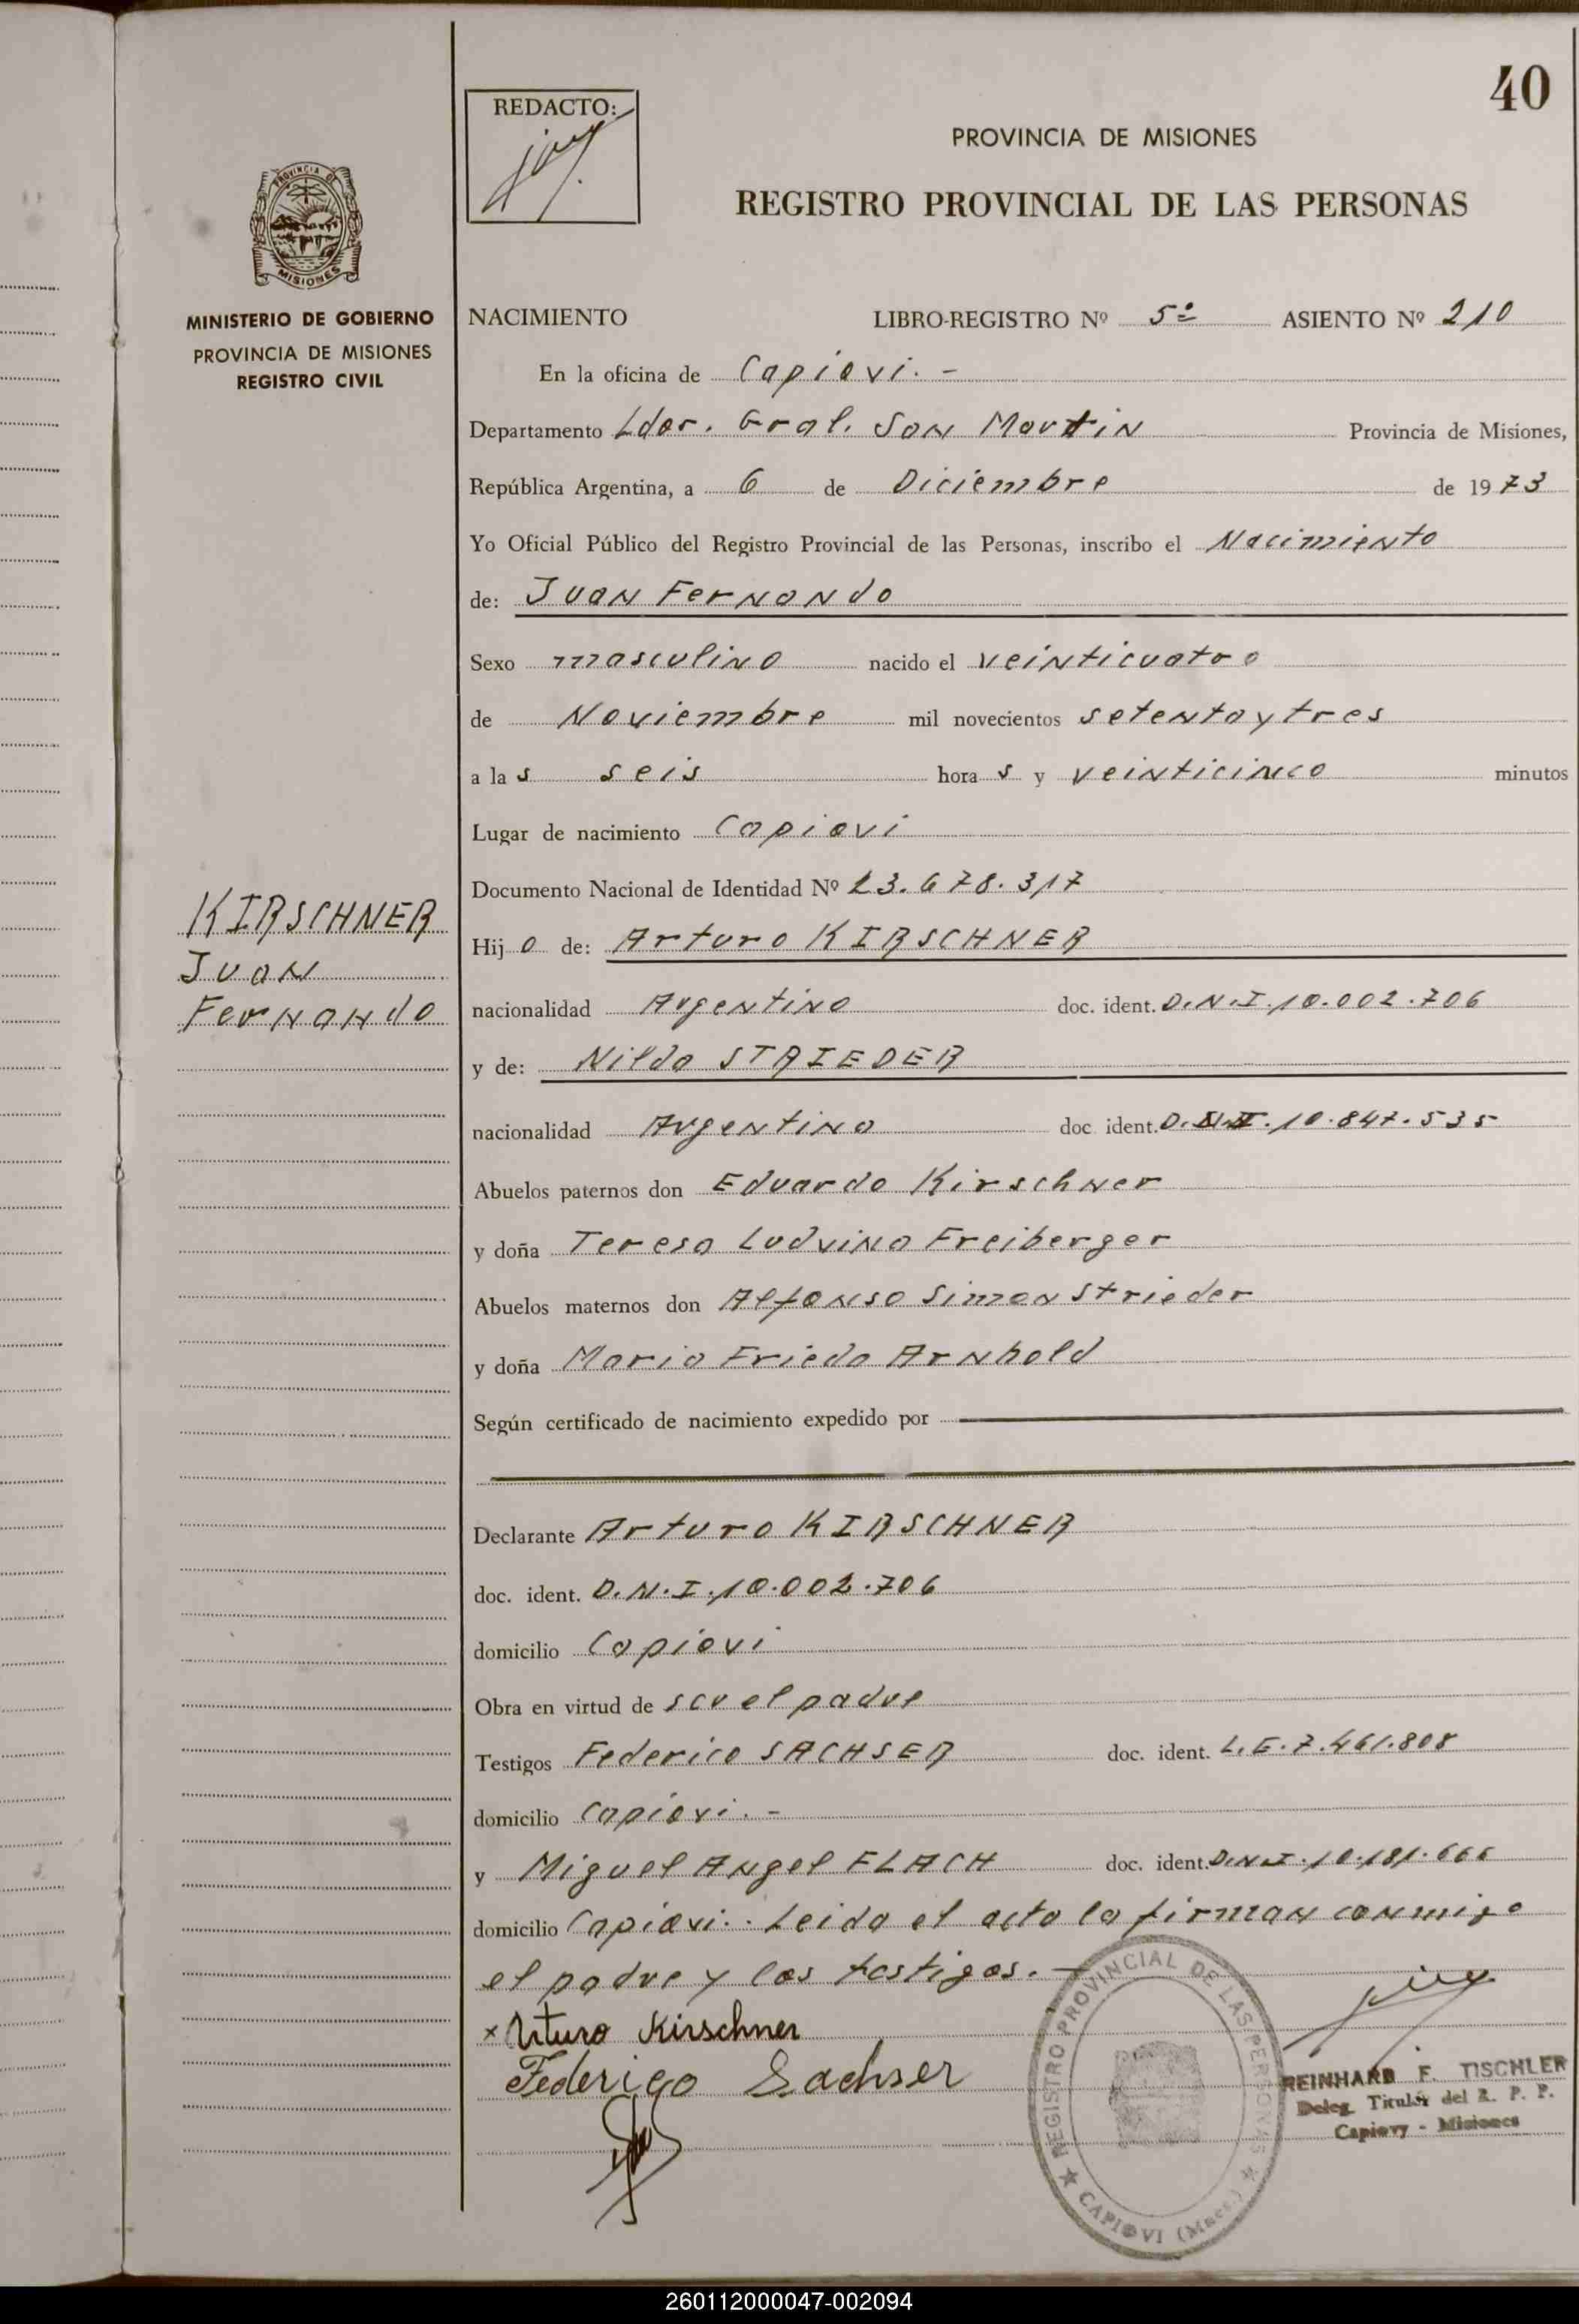 40
REDACTO:
PROVINCIA DE MISIONES
REGISTRO PROVINCIAL DE LAS PERSONAS
PROVINCIA DE
MISIONES
MINISTERIO DE GOBIERNO
PROVINCIA DE MISIONES
REGISTRO CIVIL
NACIMIENTO LIBRO-REGISTRO Nº 5º ASIENTO Nº 210
En la oficina de Capiovi. -
Departamento Ldor. Gral. San Martin Provincia de Misiones,
República Argentina, a 6 de Diciembre de 1973
Yo Oficial Público del Registro Provincial de las Personas, inscribo el Nacimiento
de: Juan Fernando
Sexo masculino nacido el veinticuatro
de Noviembre mil novecientos setenta y tres
a las seis horas y veinticinco minutos
Lugar de nacimiento Capiovi
Documento Nacional de Identidad Nº 23.678.317
KIRSCHNER
Juan
Fernando
Hijo de: Arturo KIRSCHNER
nacionalidad Argentino doc. ident. D.N.I. 10.002.706
y de: Nilda STRIEDER
nacionalidad Argentina doc. ident. D.N.I. 10.847.535
Abuelos paternos don Eduardo Kirschner
y doña Teresa Ludvina Freiberger
Abuelos maternos don Alfonso Simon Strieder
y doña Maria Frieda Arnhold
Según certificado de nacimiento expedido por
Declarante Arturo KIRSCHNER
doc. ident. D.N.I. 10.002.706
domicilio Capiovi
Obra en virtud de ser el padre
Testigos Federico SACHSER doc. ident. L.E. 7.461.808
domicilio Capiovi. -
y Miguel Angel FLACH doc. ident. D.N.I. 10.181.666
domicilio Capiovi.. Leida el acta la firman conmigo
el padre y los testigos. -
x Arturo Kirschner
Federigo Sachser
REGISTRO PROVINCIAL DE LAS PERSONAS
CAPIOVI (Mnes.)
REINHARD F. TISCHLER
Deleg. Titular del R. P. P.
Capiovy - Misiones
260112000047-002094